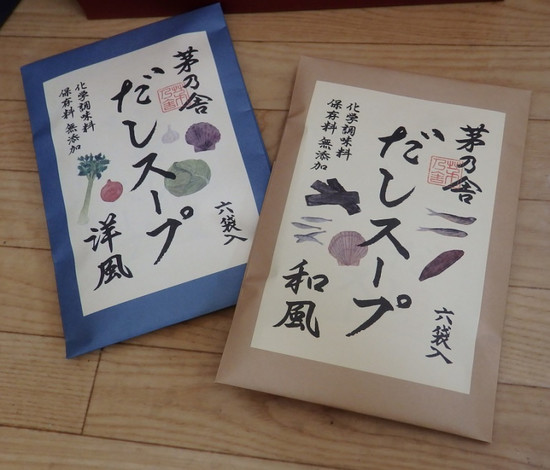 茅乃舎
だしスープ
化学調味料
保存料 無添加
洋風
六袋入
茅乃舎
だしスープ
化学調味料
保存料 無添加
和風
六袋入